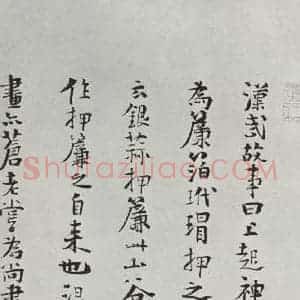 漢武故事曰上起神
為簾箔玳瑁押之
云銀蒜押簾
作押簾之自来也
畫亦蒼老嘗為尚書
ShufaZiliao.COM